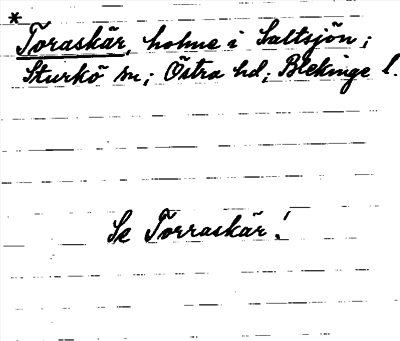 *
Toraskär, holme i Saltsjön;
Sturkö sn; Östra hd; Blekinge l.
Se Torraskär!